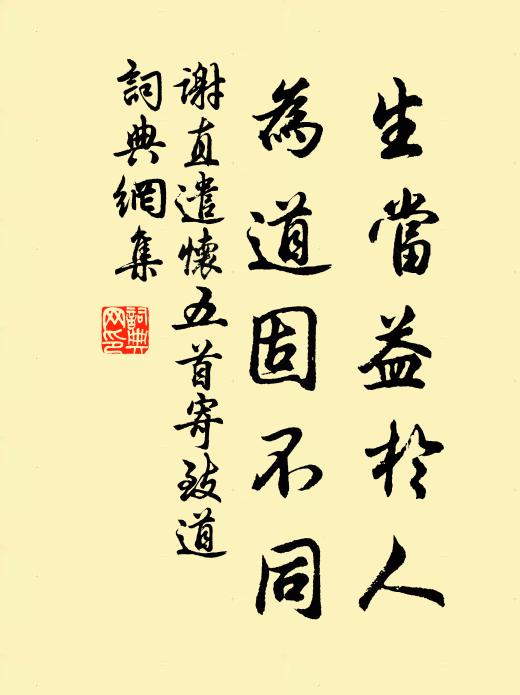 生當益於人
為道固不同
謝直遣懷五首寄致道
詞典網集
詞典
网印